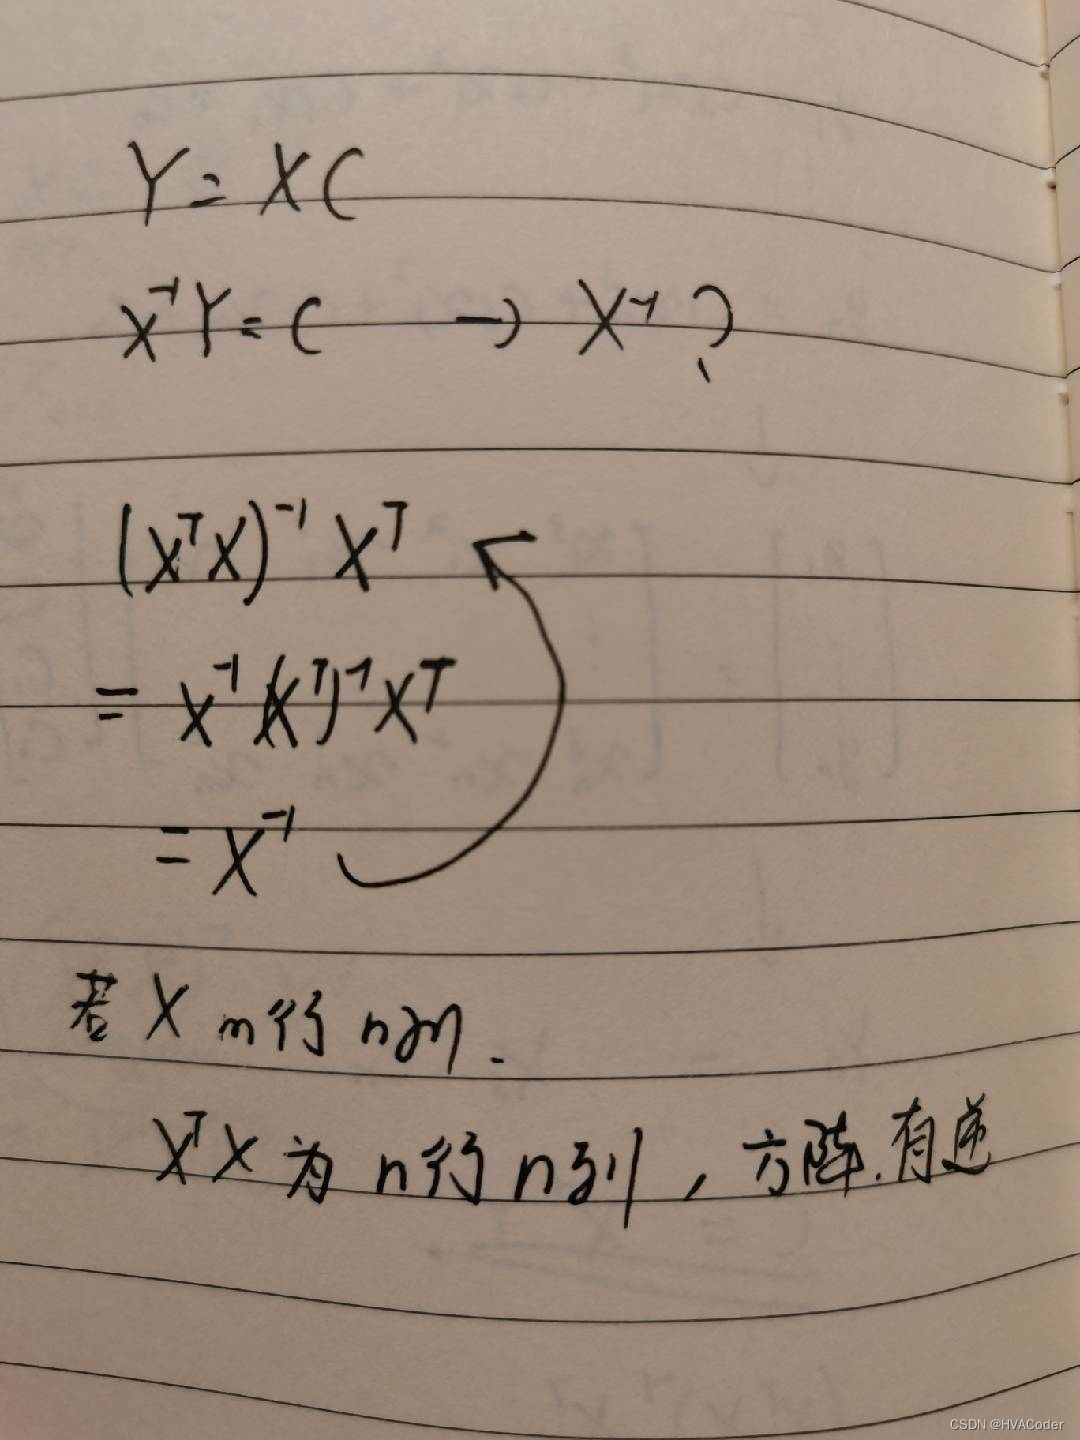 Y = XC
X⁻¹Y = C → X⁻¹?
(XᵀX)⁻¹Xᵀ
= X⁻¹(Xᵀ)⁻¹Xᵀ
= X⁻¹
若 X m行 n列.
XᵀX 为 n行 n列, 方阵.有逆
CSDN @HVACoder